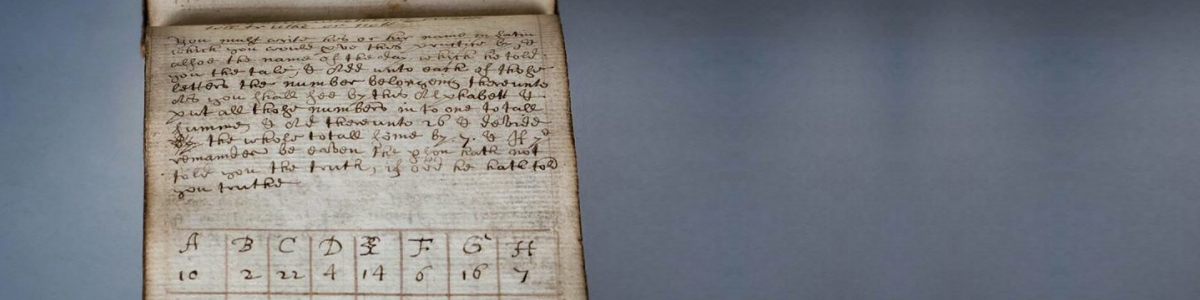 You must write his or her name in Latin
which you would prove this practise by, &
allsoe the name of the day which he told
you the tale, & Add unto each of those
letters the number belongeing thereunto
As you shall see by this Alphabett &
put all those numbers in to one totall
summe, & Ad thereunto 26 & devide
the whole totall some by .7. & If ye
remainder be eaven the pson hath not
told you the truth, if odd he hath told
you truthe
A B C D E F G H
10 2 22 4 14 6 16 7